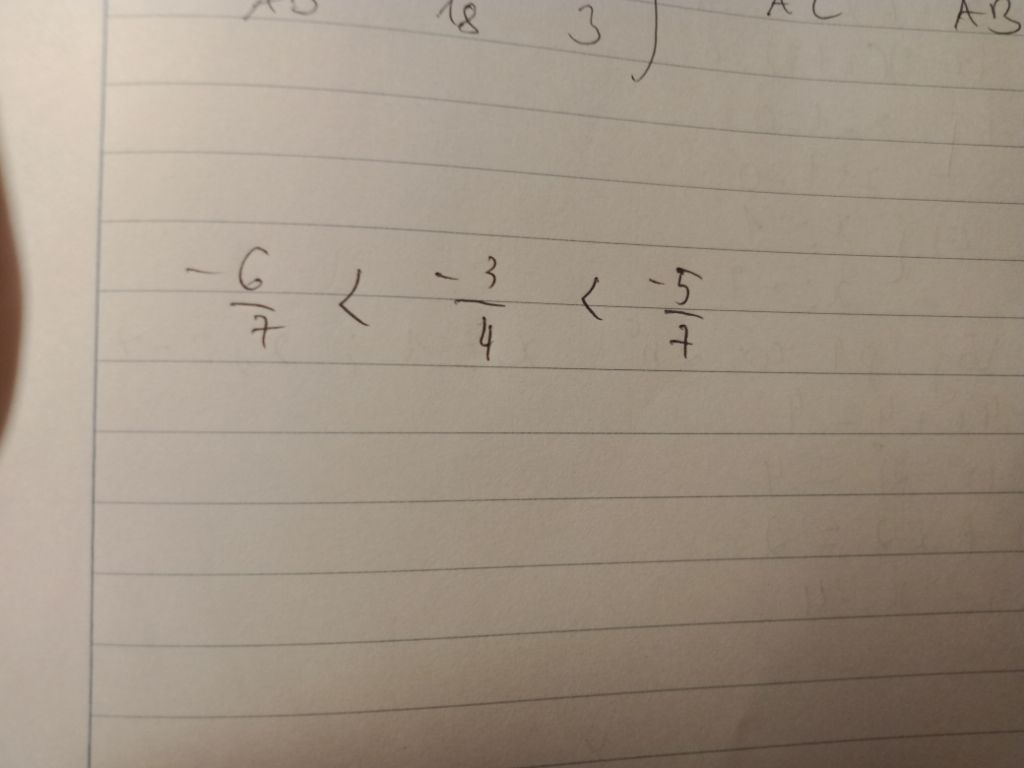 AB 18 3 ) AC AB
-6/7 < -3/4 < -5/7